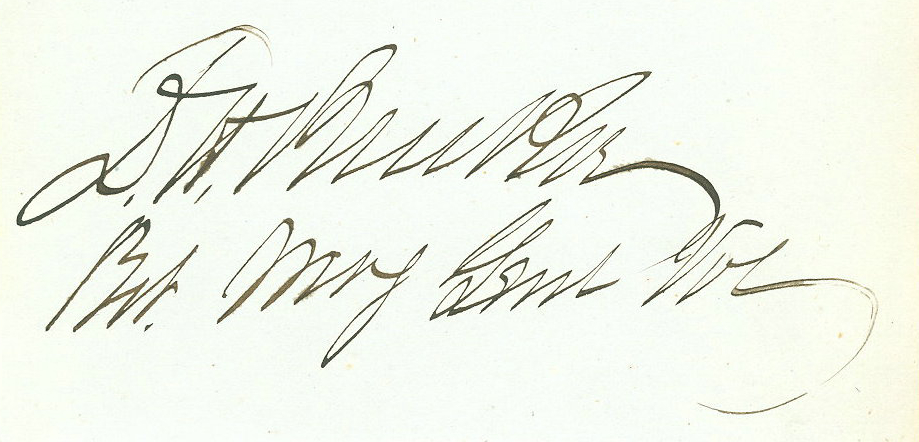 D. H. Rucker
Bvt. Maj Genl Vol